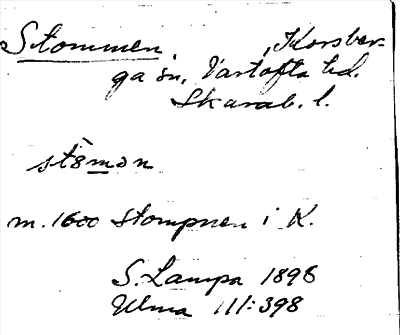 Stommen, Korsber-
ga sn, Vartofta hd.
Skarab. l.
m. 1600 Stompnen i K.
S. Lampa 1896
Ulma 111:398